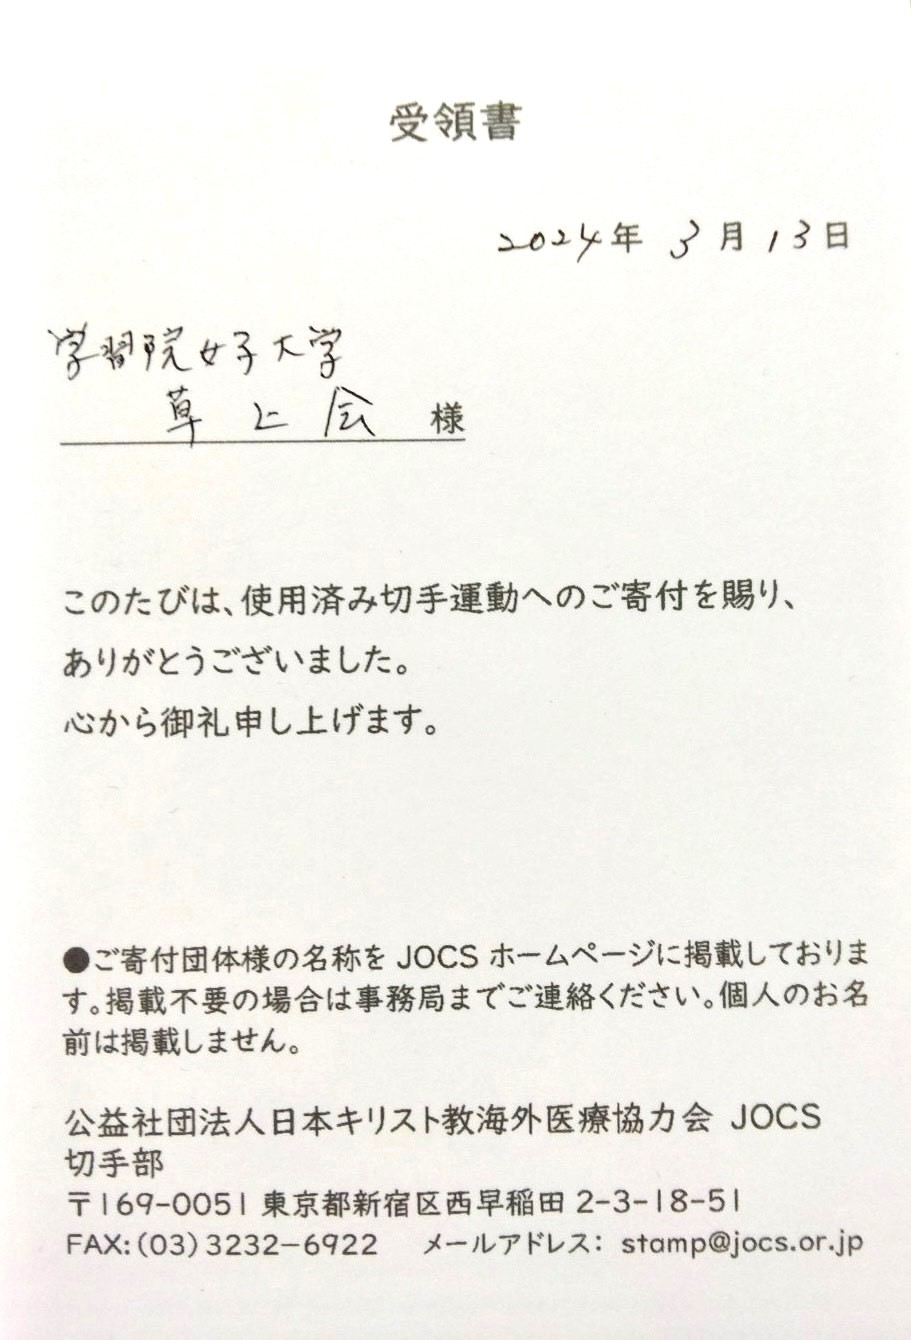 受領書
2024年 3月 13日
学習院女子大学
草上会 様
このたびは、使用済み切手運動へのご寄付を賜り、
ありがとうございました。
心から御礼申し上げます。
●ご寄付団体様の名称を JOCS ホームページに掲載しておりま
す。掲載不要の場合は事務局までご連絡ください。個人のお名
前は掲載しません。
公益社団法人日本キリスト教海外医療協力会 JOCS
切手部
〒169-0051 東京都新宿区西早稲田 2-3-18-51
FAX:(03)3232-6922 メールアドレス: stamp@jocs.or.jp